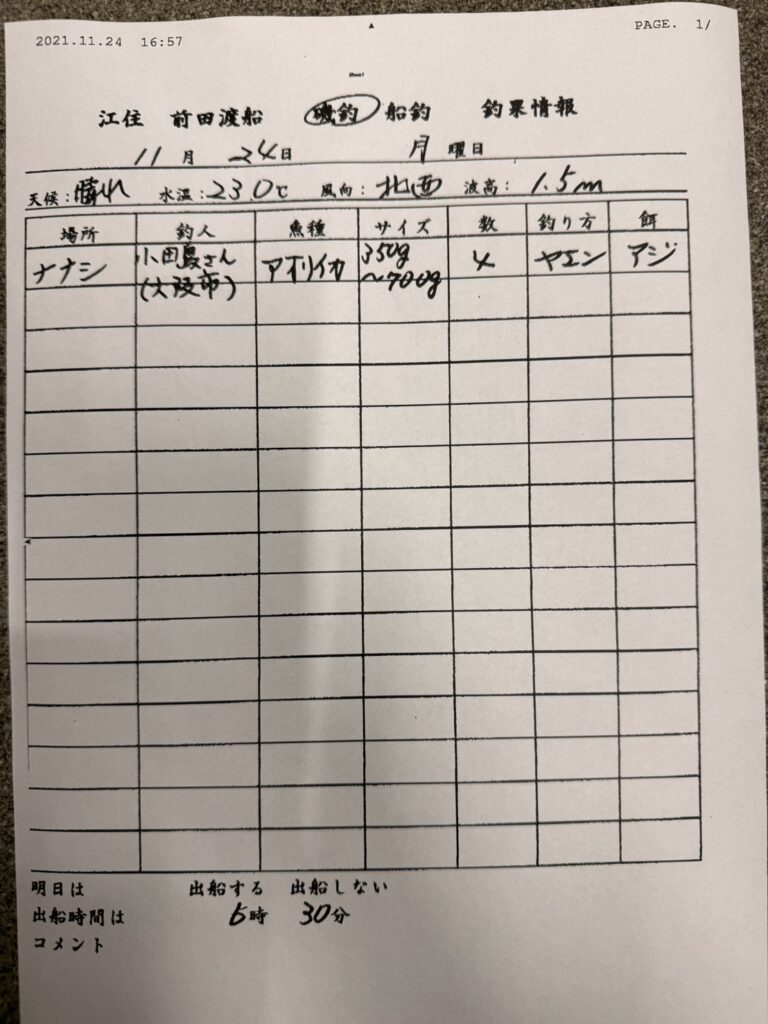 2021.11.24 16:57 PAGE. 1/
江住 前田渡船 磯釣 船釣 釣果情報
11月 24日 月曜日
天候:晴れ 水温:23.0℃ 風向:北西 波高:1.5m
場所 釣人 魚種 サイズ 数 釣り方 餌
ナナシ 小田さん アオリイカ 350g 4 ヤエン アジ
(大阪市) ~700g
明日は 出船する 出船しない
出船時間は 6時 30分
コメント